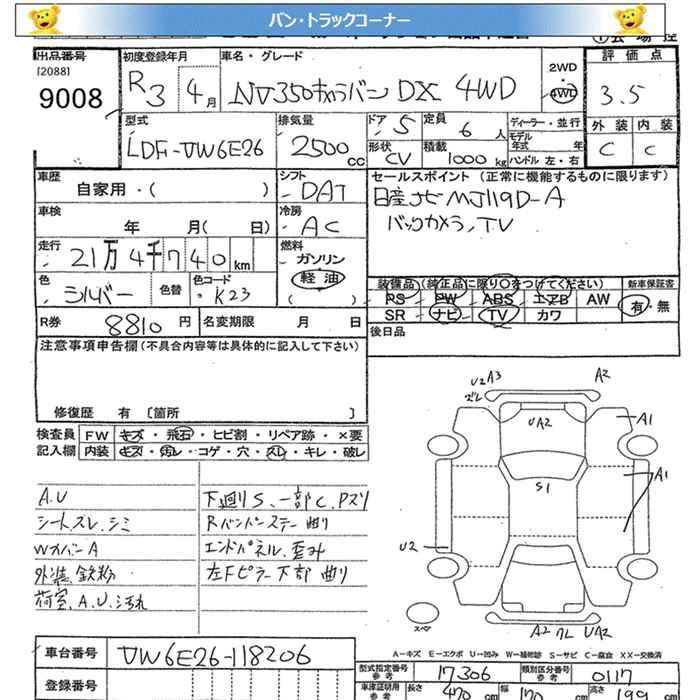 バン・トラックコーナー
出品番号 初度登録年月 車名・グレード 2WD 4WD 評価点
[2088]
9008 R3 4月 NV350キャラバン DX 4WD 3.5
型式 排気量 ドア 5 定員 6人 ディーラー・並行 外装 内装
LDF-VW6E26 2500cc 形状 CV 積載 1000kg モデル年式 年 ハンドル 左・右 C C
車歴 自家用・( ) シフト DAT セールスポイント (正常に機能するものに限ります)
車検 年 月( 日) 冷房 AC 日産ナビ MJ119D-A
バックカメラ,TV
走行 21万4千740km 燃料 ガソリン 軽油 ( )
色 シルバー 色替 色コード K23 装備品(純正品に限り○をつけてください) 新車保証書
PS PW ABS エアB AW 有・無
R券 8810円 名変期限 月 日 SR ナビ TV カワ
後日品
注意事項申告欄(不具合内容等は具体的に記入して下さい)
修復歴 有 [箇所 ]
検査員 FW キズ・飛石・ヒビ割・リペア跡・×要
記入欄 内装 キズ・汚レ・コゲ・穴・スレ・キレ・破レ
A.U 下廻りS、一部C、Pズリ
シートスレ、シミ Rバンパーステー曲り
WカバーA エンドパネル歪み
外装鉄粉 左Fピラー下部曲り
荷室、A.U.汚れ
U2 A3 ズレ A2
UA2 A1
S1 A1
U2
スペア A2 ワレ UA2
A-キズ E-エクボ U-凹み W-補修跡 S-サビ C-腐食 XX-交換済
車台番号 VW6E26-118206
型式指定番号 参考 17306 類別区分番号 参考 0117
登録番号 車庫証明用 参考 長さ 470cm 幅 170cm 高さ 199cm